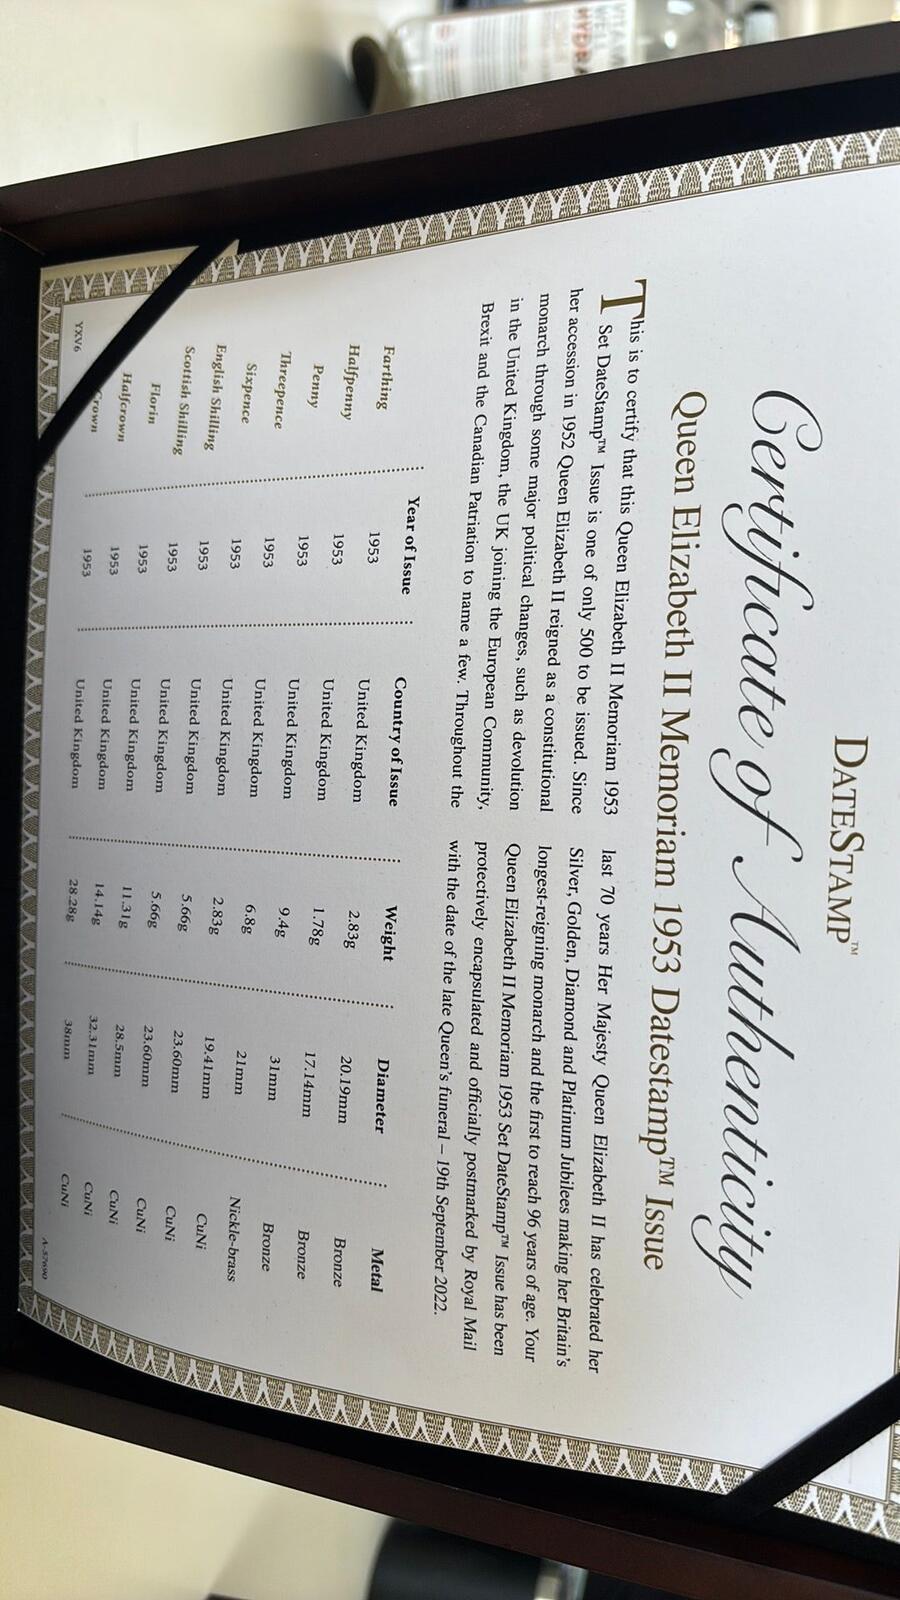 DATESTAMP™
Certificate of Authenticity
Queen Elizabeth II Memoriam 1953 Datestamp™ Issue
This is to certify that this Queen Elizabeth II Memoriam 1953
Set DateStamp™ Issue is one of only 500 to be issued. Since
her accession in 1952 Queen Elizabeth II reigned as a constitutional
monarch through some major political changes, such as devolution
in the United Kingdom, the UK joining the European Community,
Brexit and the Canadian Patriation to name a few. Throughout the
last 70 years Her Majesty Queen Elizabeth II has celebrated her
Silver, Golden, Diamond and Platinum Jubilees making her Britain's
longest-reigning monarch and the first to reach 96 years of age. Your
Queen Elizabeth II Memoriam 1953 Set DateStamp™ Issue has been
protectively encapsulated and officially postmarked by Royal Mail
with the date of the late Queen's funeral – 19th September 2022.
Year of Issue Country of Issue Weight Diameter Metal
Farthing 1953 United Kingdom 2.83g 20.19mm Bronze
Halfpenny 1953 United Kingdom 1.78g 17.14mm Bronze
Penny 1953 United Kingdom 9.4g 31mm Bronze
Threepence 1953 United Kingdom 6.8g 21mm Nickle-brass
Sixpence 1953 United Kingdom 2.83g 19.41mm CuNi
English Shilling 1953 United Kingdom 5.66g 23.60mm CuNi
Scottish Shilling 1953 United Kingdom 5.66g 23.60mm CuNi
Florin 1953 United Kingdom 11.31g 28.5mm CuNi
Halfcrown 1953 United Kingdom 14.14g 32.31mm CuNi
Crown 1953 United Kingdom 28.28g 38mm CuNi
YXV6
A-57690